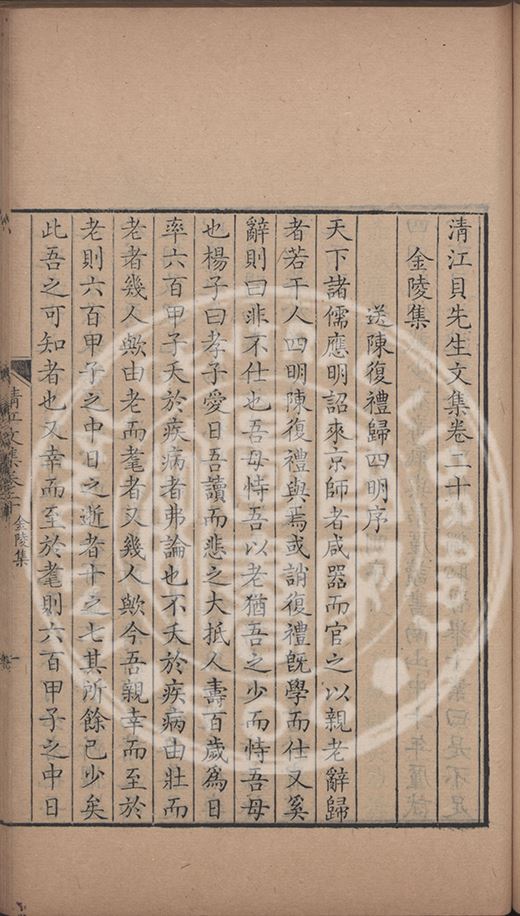 清江貝先生文集卷二十
金陵集
送陳復禮歸四明序
天下諸儒應明詔來京師者咸器而官之以親老辭歸
者若干人四明陳復禮與焉或誚復禮既學而仕又奚
辭則曰非不仕也吾母恃吾以老猶吾之少而恃吾母
也楊子曰孝子愛日吾讀而悲之大抵人壽百歲為日
率六百甲子夭於疾病者弗論也不夭於疾病由壯而
老者幾人歟由老而耄者又幾人歟今吾親幸而至於
老則六百甲子之中日之逝者十之七其所餘已少矣
此吾之可知者也又幸而至於耄則六百甲子之中日
清江文集卷二十
金陵集
一